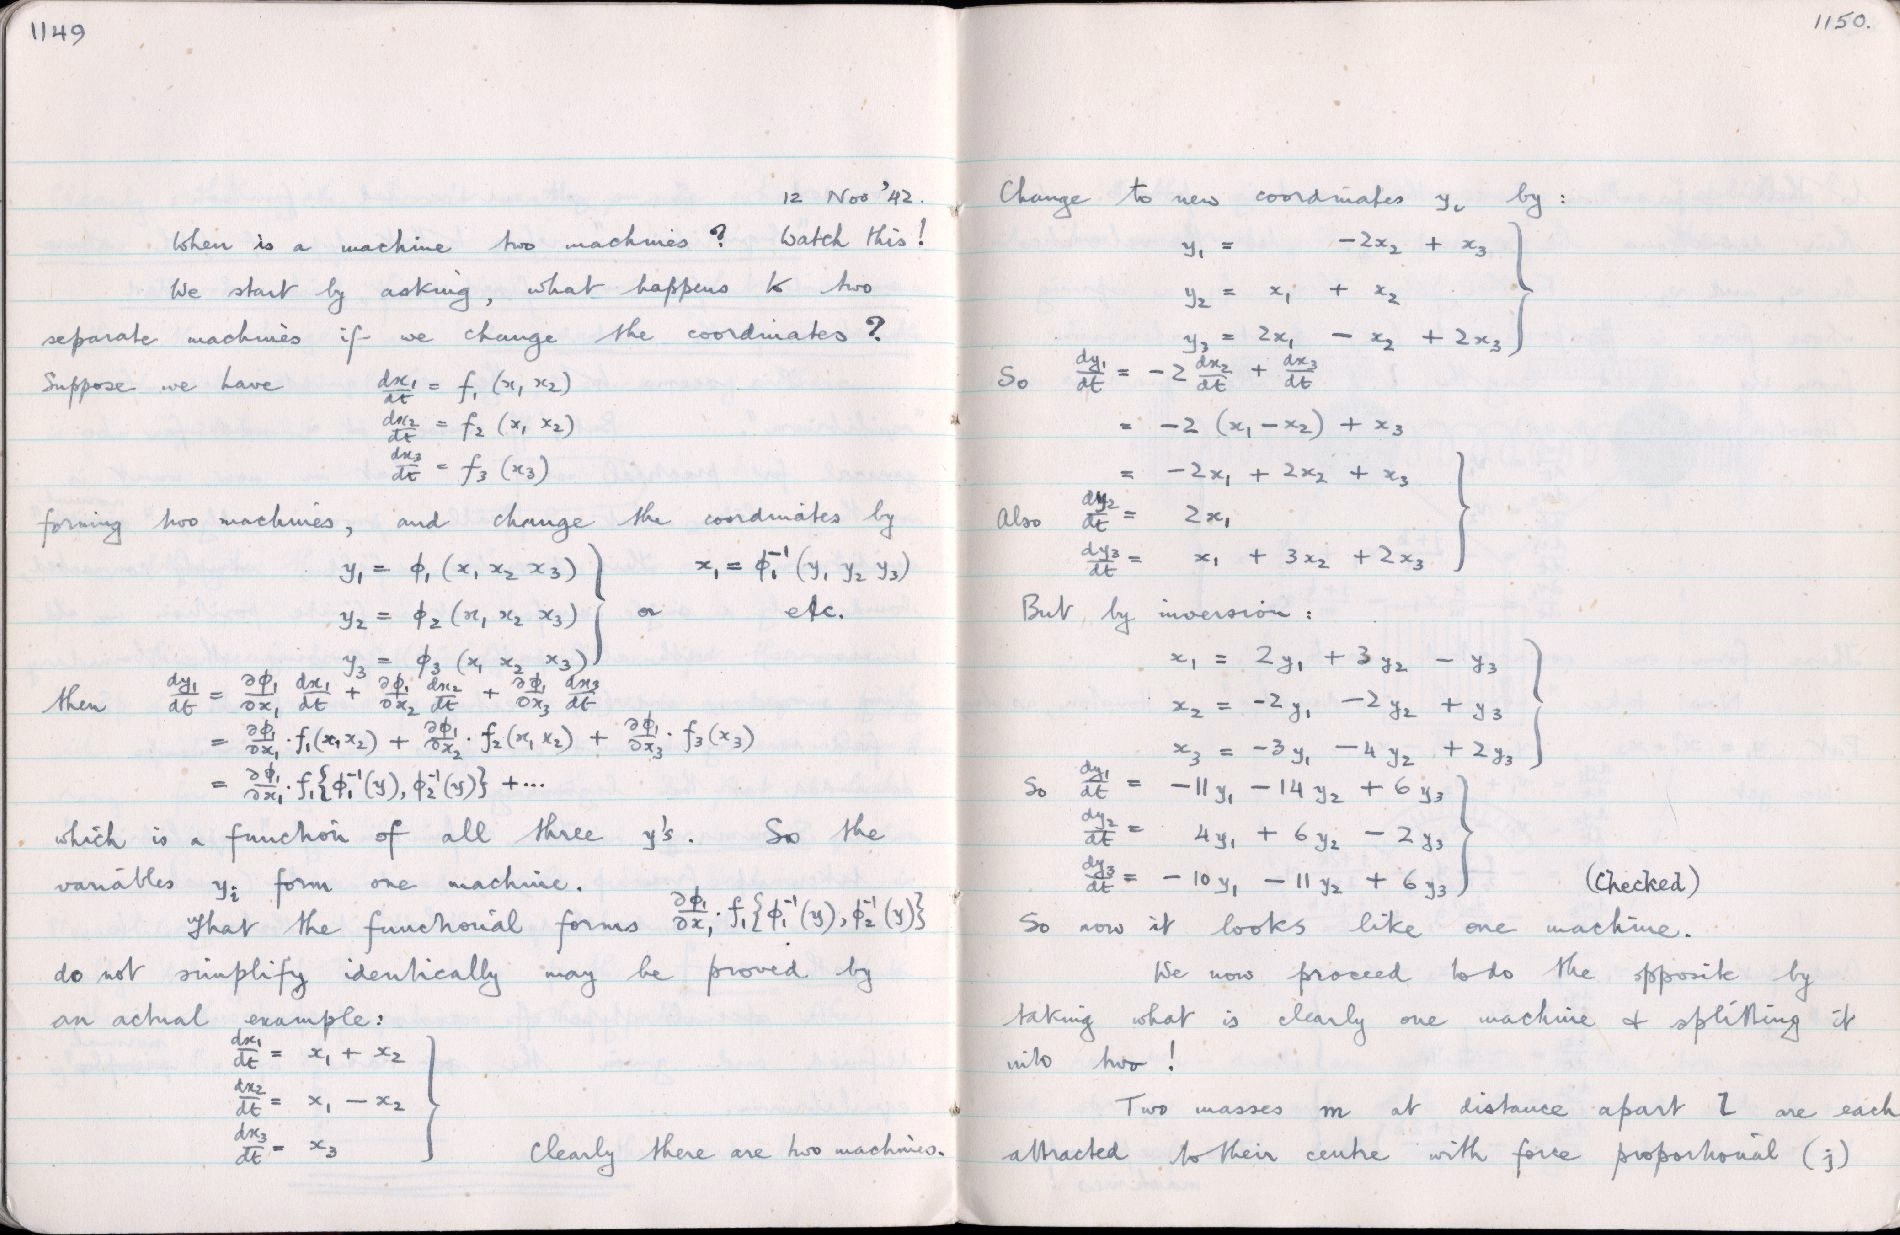 1149
12 Nov '42.
When is a machine two machines? Watch this!
We start by asking, what happens to two
separate machines if we change the coordinates?
Suppose we have dx₁/dt = f₁ (x₁ x₂)
dx₂/dt = f₂ (x₁ x₂)
dx₃/dt = f₃ (x₃)
forming two machines, and change the coordinates by
y₁ = ϕ₁ (x₁ x₂ x₃) } x₁ = ϕ₁⁻¹ (y₁ y₂ y₃)
y₂ = ϕ₂ (x₁ x₂ x₃) } or etc.
y₃ = ϕ₃ (x₁ x₂ x₃) }
then dy₁/dt = ∂ϕ₁/∂x₁ dx₁/dt + ∂ϕ₁/∂x₂ dx₂/dt + ∂ϕ₁/∂x₃ dx₃/dt
= ∂ϕ₁/∂x₁ · f₁(x₁x₂) + ∂ϕ₁/∂x₂ · f₂(x₁x₂) + ∂ϕ₁/∂x₃ · f₃(x₃)
= ∂ϕ₁/∂x₁ · f₁{ϕ₁⁻¹(y), ϕ₂⁻¹(y)} + ...
which is a function of all three y's. So the
variables yᵢ form one machine.
That the functional forms ∂ϕ₁/∂x₁ · f₁{ϕ₁⁻¹(y), ϕ₂⁻¹(y)}
do not simplify identically may be proved by
an actual example:
dx₁/dt = x₁ + x₂ }
dx₂/dt = x₁ − x₂ }
dx₃/dt = x₃ } Clearly there are two machines.
1150.
Change to new coordinates yᵢ by:
y₁ = −2x₂ + x₃ }
y₂ = x₁ + x₂ }
y₃ = 2x₁ − x₂ + 2x₃ }
So dy₁/dt = −2 dx₂/dt + dx₃/dt
= −2 (x₁ − x₂) + x₃
= −2x₁ + 2x₂ + x₃ }
Also dy₂/dt = 2x₁ }
dy₃/dt = x₁ + 3x₂ + 2x₃ }
But by inversion:
x₁ = 2y₁ + 3y₂ − y₃ }
x₂ = −2y₁ − 2y₂ + y₃ }
x₃ = −3y₁ − 4y₂ + 2y₃ }
So dy₁/dt = −11y₁ − 14y₂ + 6y₃ }
dy₂/dt = 4y₁ + 6y₂ − 2y₃ }
dy₃/dt = −10y₁ − 11y₂ + 6y₃ } (Checked)
So now it looks like one machine.
We now proceed to do the opposite by
taking what is clearly one machine & splitting it
into two!
Two masses m at distance apart l are each
attracted to their centre with force proportional (j)